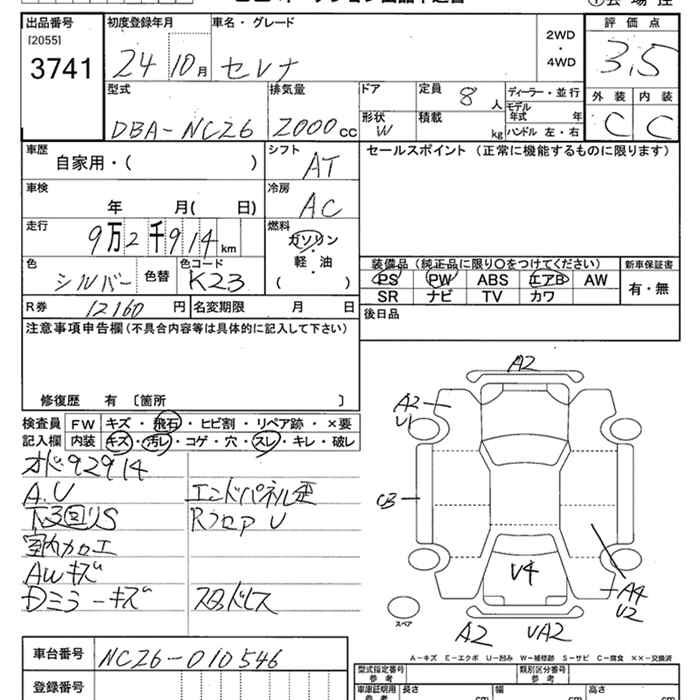 出品番号 初度登録年月 車名・グレード 評価点
[2055]
3741 24 10月 セレナ 2WD・4WD 3.5
型式 排気量 ドア 定員 8人 ディーラー・並行 外装 内装
DBA-NC26 2000cc 形状 W 積載 kg モデル年式 年 ハンドル 左・右 C C
車歴 自家用・( ) シフト AT セールスポイント (正常に機能するものに限ります)
車検 年 月( 日) 冷房 AC
走行 9万2千914km 燃料 ガソリン・軽・油 ( )
装備品(純正品に限り○をつけてください) 新車保証書
色 シルバー 色替 色コード K23 PS PW ABS エアB AW 有・無
SR ナビ TV カワ
R券 12160円 名変期限 月 日 後日品
注意事項申告欄(不具合内容等は具体的に記入して下さい)
修復歴 有 〔箇所 〕
検査員 FW キズ・飛石・ヒビ割・リペア跡・×要
記入欄 内装 キズ・汚レ・コゲ・穴・スレ・キレ・破レ
オド92914
A.U エンドパネル歪
下廻りS Rフロア U
室内カロエ
AWキズ
Dミラーキズ スタッドレス
A2
A2
U1
C3
V4
A4
U2
スペア
A2 UA2
A-キズ E-エクボ U-凹み W-補修跡 S-サビ C-腐食 ××-交換済
車台番号 NC26-010546
型式指定番号 参考 類別区分番号 参考
登録番号 車庫証明用 参考 長さ cm 幅 cm 高さ cm